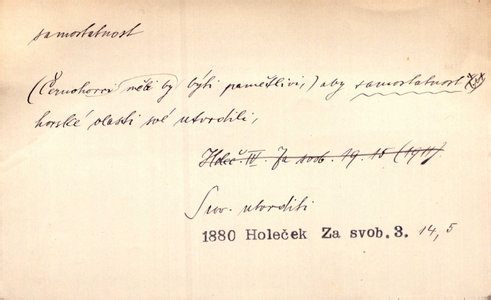 samostatnost
(Černohorci měli by býti pamětlivi,) aby samostatnost
horské vlasti své utvrdili,
Holeč. IV. Za svob. 19. 15 (1917)
Srov. utvrditi
1880 Holeček Za svob. 3. 14,5